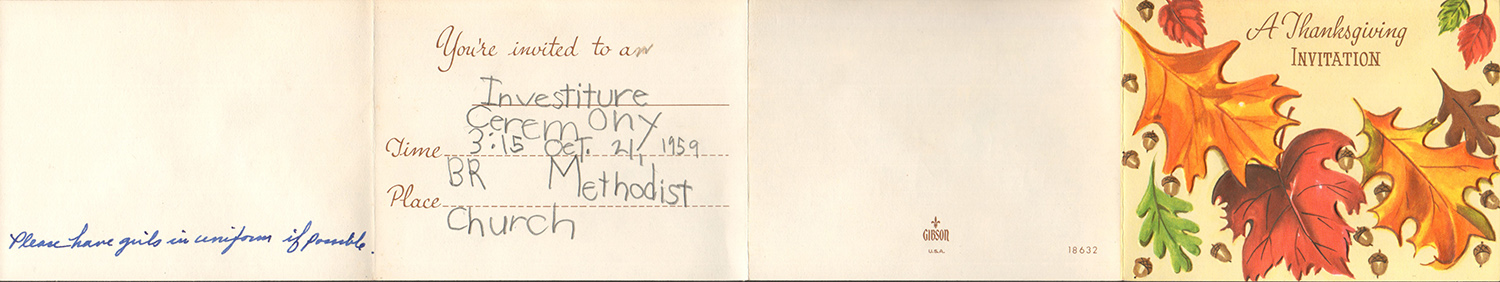 Please have girls in uniform if possible.
You're invited to an
Investiture
Ceremony
Time 3:15 OCT. 21, 1959
BR Methodist
Place
Church
GIBSON
U.S.A.
18632
A Thanksgiving
INVITATION